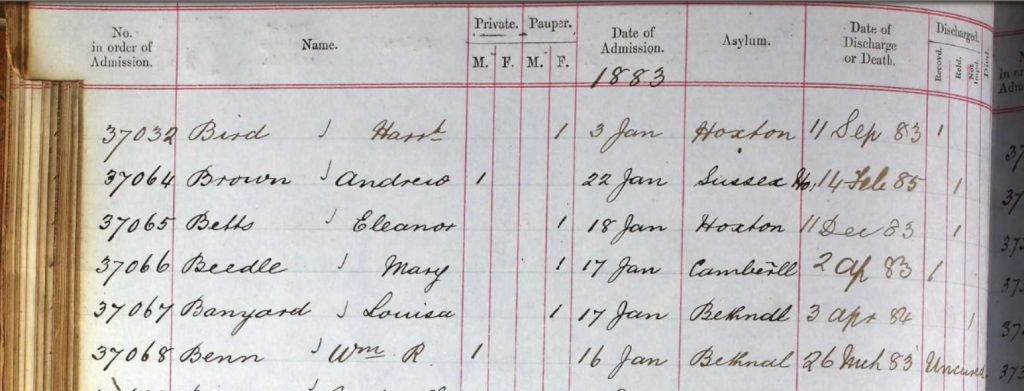 No. in order of Admission. Name. Private. Pauper. Date of Admission. Asylum. Date of Discharge or Death. Discharged.
M. F. M. F. Recovd. Reld. Not Impd. Died.
1883
37032 Bird Harrt 1 3 Jan Hoxton 11 Sep 83 1
37064 Brown Andrew 1 22 Jan Sussex Ho, 14 Feb 85 1
37065 Betts Eleanor 1 18 Jan Hoxton 11 Dec 83 1
37066 Beedle Mary 1 17 Jan Camberll 2 Ap 83 1
37067 Banyard Louisa 1 17 Jan Bethndl 3 Apr 84 1
37068 Benn Wm R. 1 16 Jan Bethnal 26 Mch 83 Uncured